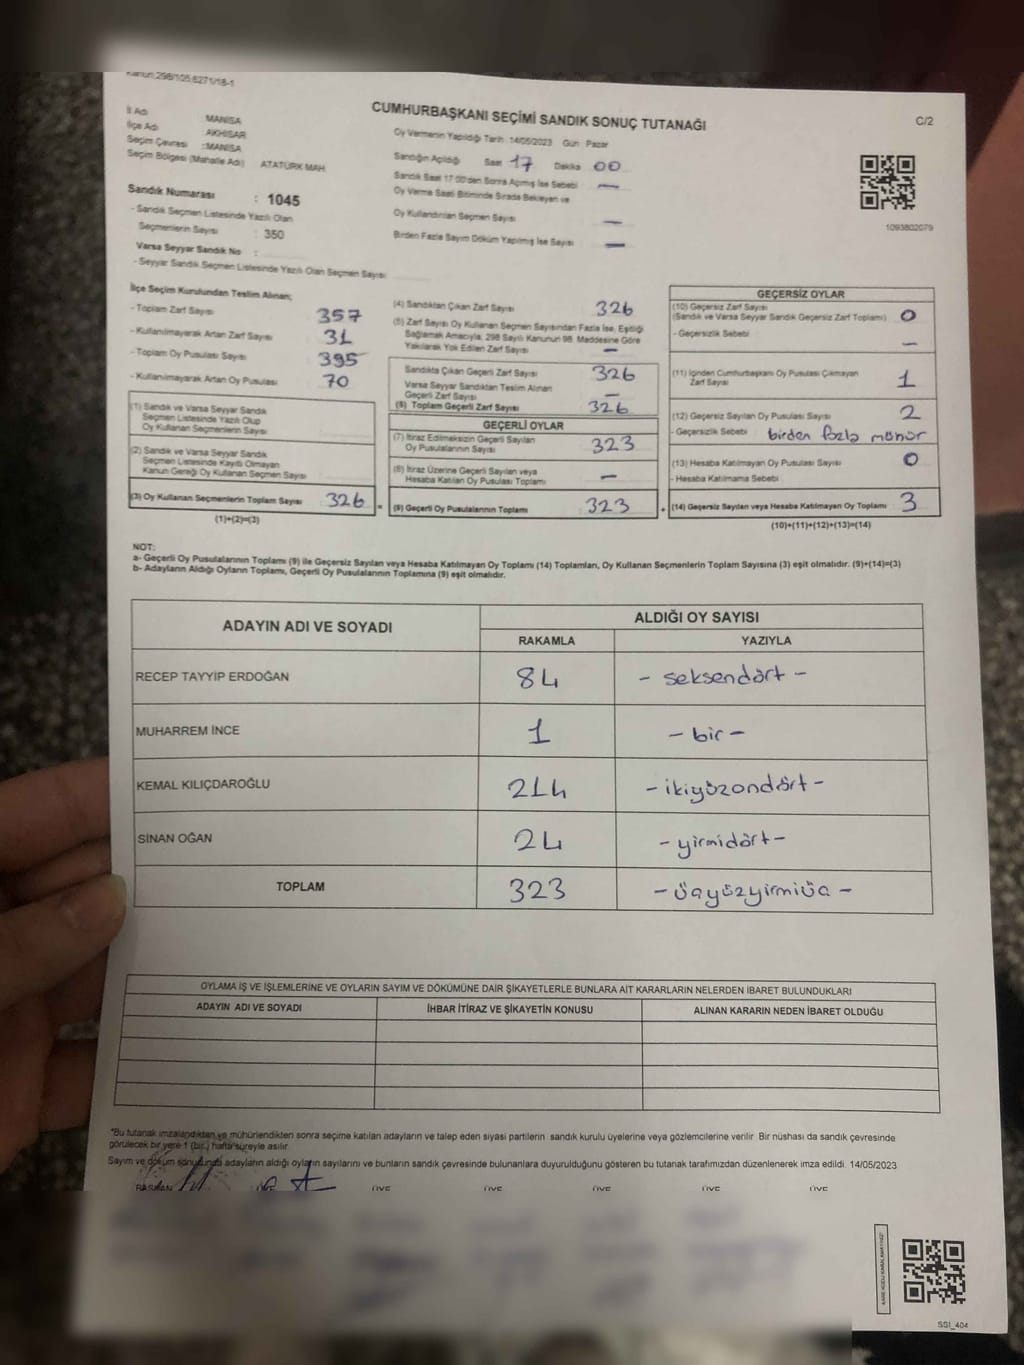 Kanun:298/105,6271/18-1
CUMHURBAŞKANI SEÇİMİ SANDIK SONUÇ TUTANAĞI
C/2
İl Adı MANİSA
İlçe Adı AKHİSAR
Seçim Çevresi :MANİSA
Seçim Bölgesi (Mahalle Adı) ATATÜRK MAH.
Sandık Numarası : 1045
- Sandık Seçmen Listesinde Yazılı Olan
Seçmenlerin Sayısı : 350
Varsa Seyyar Sandık No :
- Seyyar Sandık Seçmen Listesinde Yazılı Olan Seçmen Sayısı:
Oy Vermenin Yapıldığı Tarih 14/05/2023 Gün Pazar
Sandığın Açıldığı Saat 17 Dakika 00
Sandık Saat 17:00'den Sonra Açılmış İse Sebebi —
Oy Verme Saati Bitiminde Sırada Bekleyen ve
Oy Kullandırılan Seçmen Sayısı —
Birden Fazla Sayım Döküm Yapılmış İse Sayısı —
1093802079
İlçe Seçim Kurulundan Teslim Alınan;
- Toplam Zarf Sayısı 357
- Kullanılmayarak Artan Zarf Sayısı 31
- Toplam Oy Pusulası Sayısı 395
- Kullanılmayarak Artan Oy Pusulası 70
(1) Sandık ve Varsa Seyyar Sandık
Seçmen Listesinde Yazılı Olup
Oy Kullanan Seçmenlerin Sayısı
(2) Sandık ve Varsa Seyyar Sandık
Seçmen Listesinde Kayıtlı Olmayan
Kanun Gereği Oy Kullanan Seçmen Sayısı
(3) Oy Kullanan Seçmenlerin Toplam Sayısı 326 =
(1)+(2)=(3)
(4) Sandıktan Çıkan Zarf Sayısı 326
(5) Zarf Sayısı Oy Kullanan Seçmen Sayısından Fazla İse, Eşitliği
Sağlamak Amacıyla, 298 Sayılı Kanunun 98. Maddesine Göre
Yakılarak Yok Edilen Zarf Sayısı —
Sandıkta Çıkan Geçerli Zarf Sayısı 326
Varsa Seyyar Sandıktan Teslim Alınan
Geçerli Zarf Sayısı —
(6) Toplam Geçerli Zarf Sayısı 326
GEÇERLİ OYLAR
(7) İtiraz Edilmeksizin Geçerli Sayılan
Oy Pusulalarının Sayısı 323
(8) İtiraz Üzerine Geçerli Sayılan veya
Hesaba Katılan Oy Pusulası Toplamı —
(9) Geçerli Oy Pusulalarının Toplamı 323 +
GEÇERSİZ OYLAR
(10) Geçersiz Zarf Sayısı
(Sandık ve Varsa Seyyar Sandık Geçersiz Zarf Toplamı) 0
- Geçersizlik Sebebi —
(11) İçinden Cumhurbaşkanı Oy Pusulası Çıkmayan
Zarf Sayısı 1
(12) Geçersiz Sayılan Oy Pusulası Sayısı 2
- Geçersizlik Sebebi birden fazla mühür
(13) Hesaba Katılmayan Oy Pusulası Sayısı 0
- Hesaba Katılmama Sebebi
(14) Geçersiz Sayılan veya Hesaba Katılmayan Oy Toplamı 3
(10)+(11)+(12)+(13)=(14)
NOT:
a- Geçerli Oy Pusulalarının Toplamı (9) ile Geçersiz Sayılan veya Hesaba Katılmayan Oy Toplamı (14) Toplamları, Oy Kullanan Seçmenlerin Toplam Sayısına (3) eşit olmalıdır. (9)+(14)=(3)
b- Adayların Aldığı Oyların Toplamı, Geçerli Oy Pusulalarının Toplamına (9) eşit olmalıdır.
ADAYIN ADI VE SOYADI ALDIĞI OY SAYISI
RAKAMLA YAZIYLA
RECEP TAYYİP ERDOĞAN 84 - seksendört -
MUHARREM İNCE 1 - bir -
KEMAL KILIÇDAROĞLU 214 - ikiyüzondört -
SİNAN OĞAN 24 - yirmidört -
TOPLAM 323 - üçyüzyirmiüç -
OYLAMA İŞ VE İŞLEMLERİNE VE OYLARIN SAYIM VE DÖKÜMÜNE DAİR ŞİKAYETLERLE BUNLARA AİT KARARLARIN NELERDEN İBARET BULUNDUKLARI
ADAYIN ADI VE SOYADI İHBAR İTİRAZ VE ŞİKAYETİN KONUSU ALINAN KARARIN NEDEN İBARET OLDUĞU
*Bu tutanak imzalandıktan ve mühürlendikten sonra seçime katılan adayların ve talep eden siyasi partilerin sandık kurulu üyelerine veya gözlemcilerine verilir. Bir nüshası da sandık çevresinde
görülecek bir yere 1 (bir) hafta süreyle asılır.
Sayım ve döküm sonucunda adayların aldığı oyların sayılarını ve bunların sandık çevresinde bulunanlara duyurulduğunu gösteren bu tutanak tarafımızdan düzenlenerek imza edildi. 14/05/2023
BAŞKAN ÜYE ÜYE ÜYE ÜYE ÜYE
SS1_404